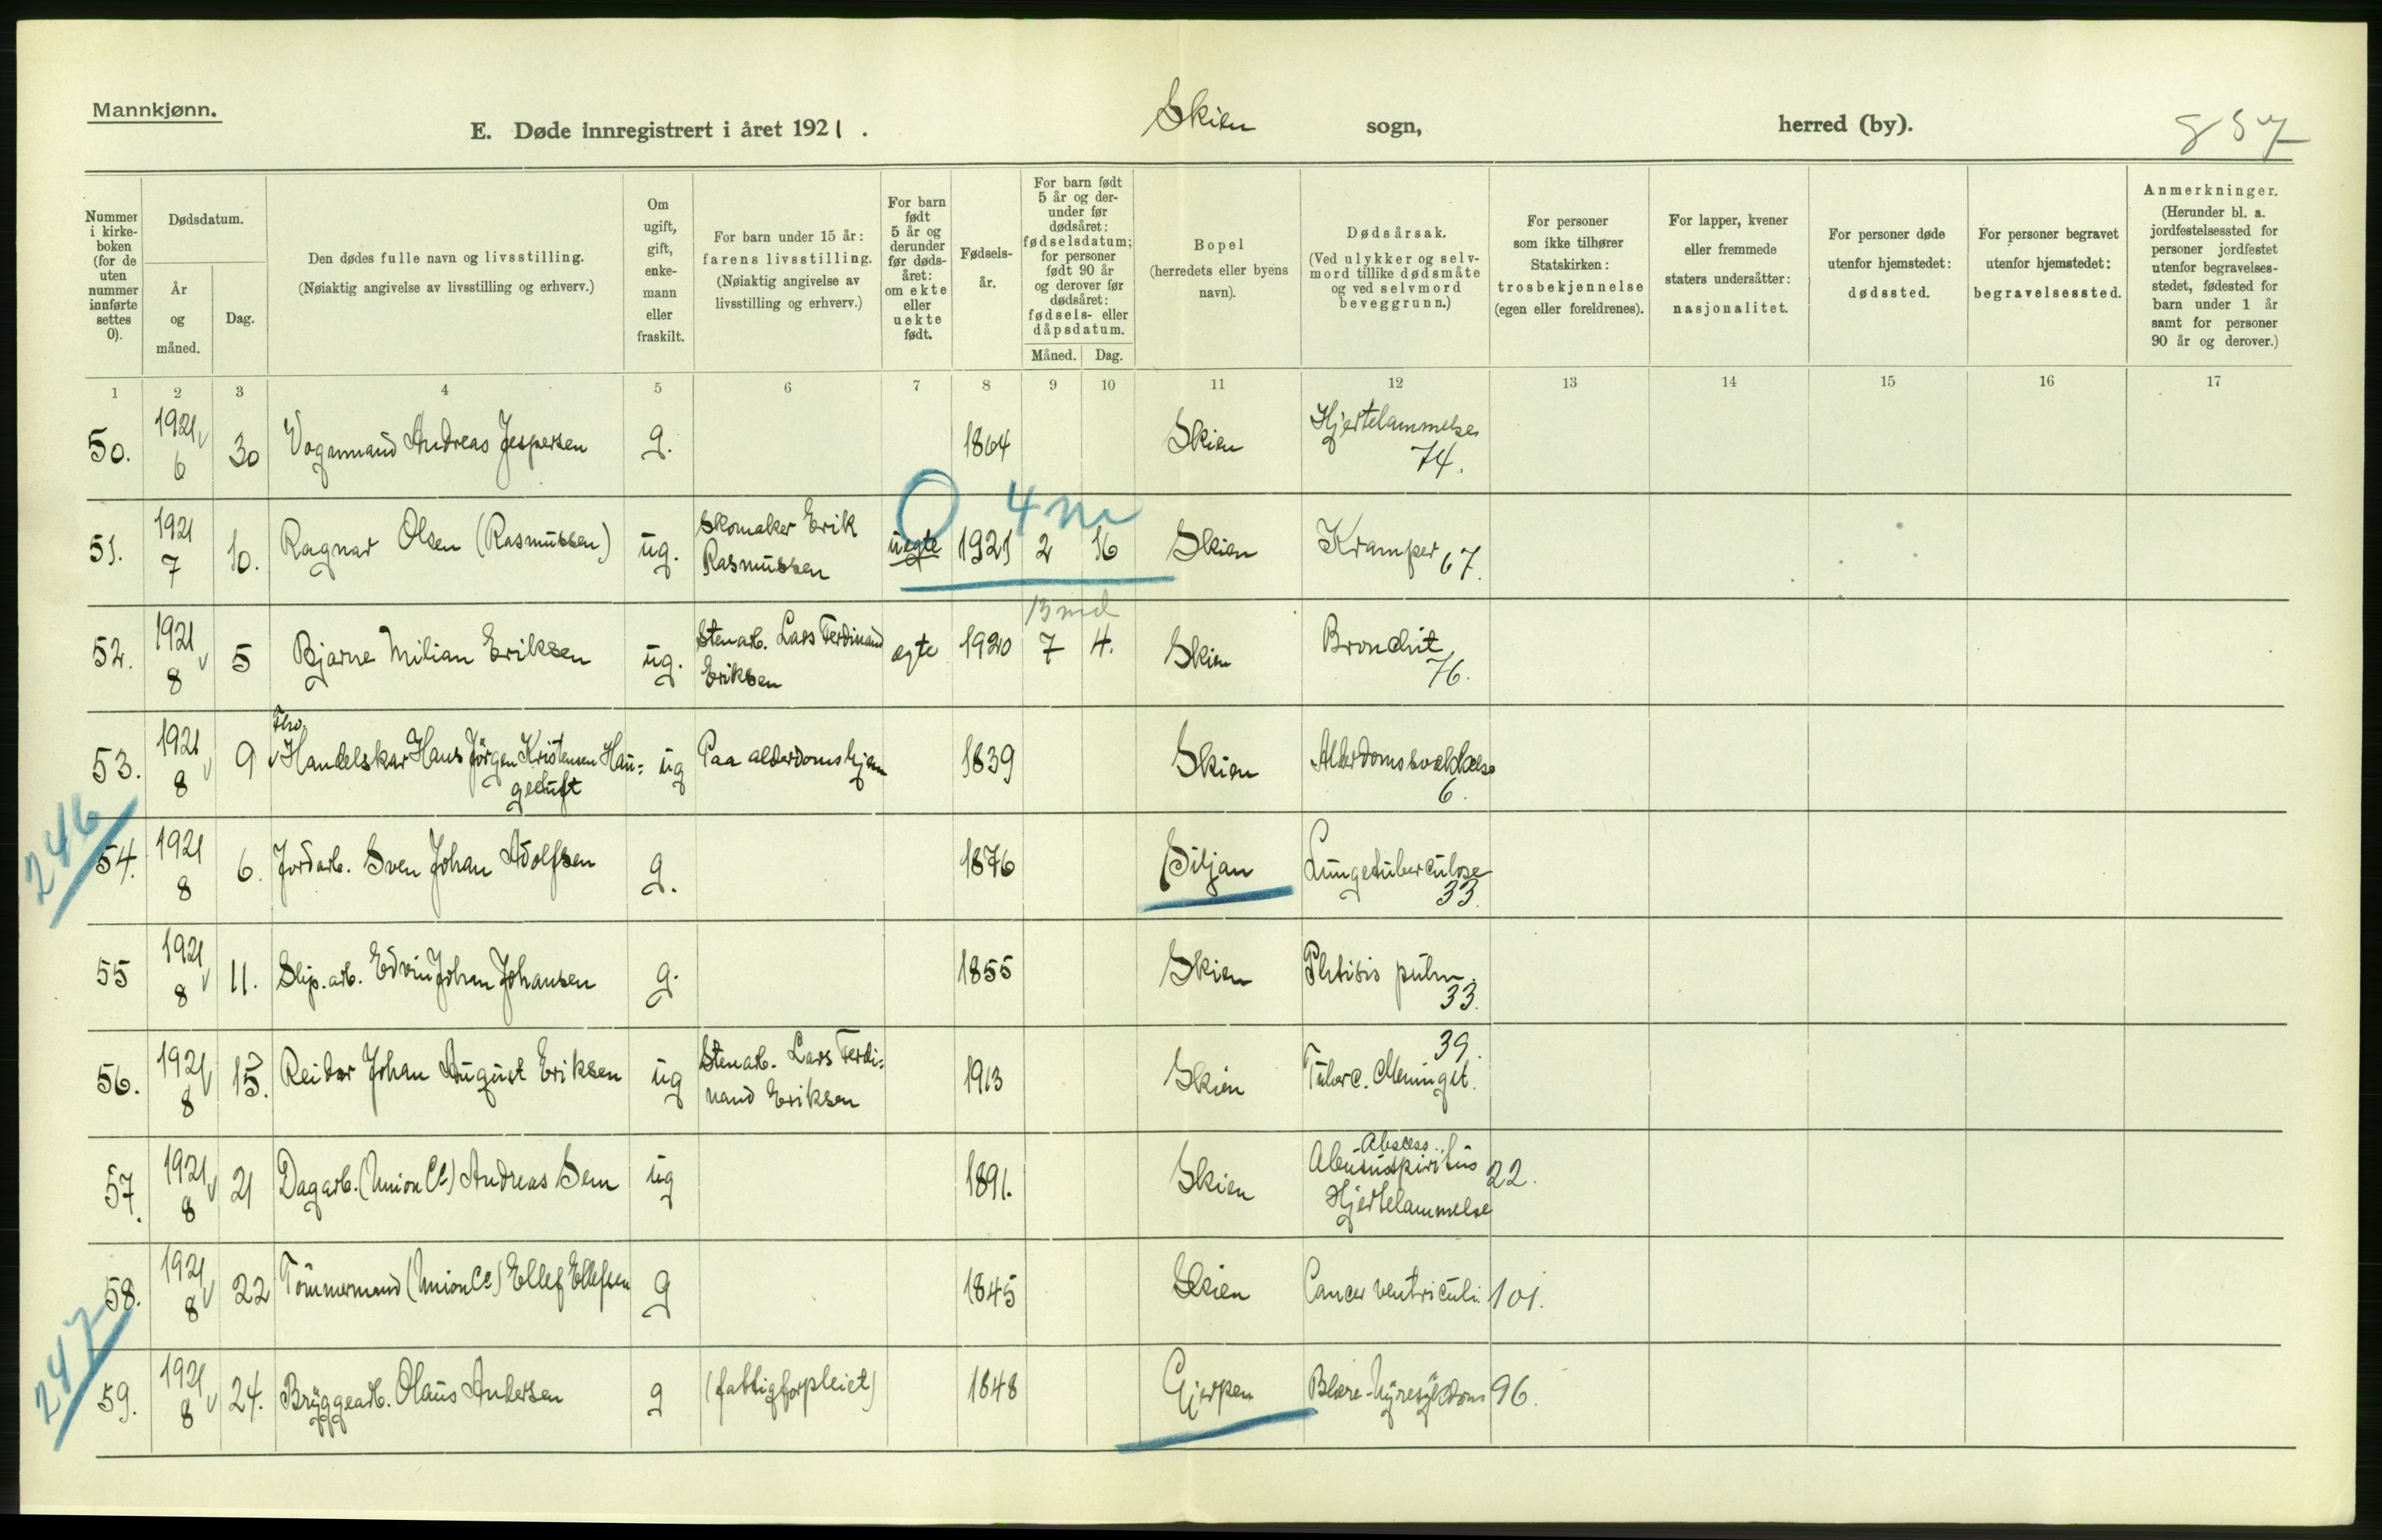 Mannkjønn.
E. Døde innregistrert i året 1921. Skien sogn, herred (by). 857
Nummer i kirkeboken (for de uten nummer innførte settes 0).
Dødsdatum.
År og måned.
Dag.
Den dødes fulle navn og livsstilling.
(Nøiaktig angivelse av livsstilling og erhverv.)
Om ugift, gift, enkemann eller fraskilt.
For barn under 15 år: farens livsstilling.
(Nøiaktig angivelse av livsstilling og erhverv.)
For barn født 5 år og derunder før dødsåret: om ekte eller uekte født.
Fødselsår.
For barn født 5 år og derunder før dødsåret: fødselsdatum; for personer født 90 år og derover før dødsåret: fødsels- eller dåpsdatum.
Måned. Dag.
Bopel
(herredets eller byens navn).
Dødsårsak.
(Ved ulykker og selvmord tillike dødsmåte og ved selvmord beveggrunn.)
For personer som ikke tilhører Statskirken: trosbekjennelse (egen eller foreldrenes).
For lapper, kvener eller fremmede staters undersåtter: nasjonalitet.
For personer døde utenfor hjemstedet: dødssted.
For personer begravet utenfor hjemstedet: begravelsessted.
Anmerkninger.
(Herunder bl. a. jordfestelsessted for personer jordfestet utenfor begravelsesstedet, fødested for barn under 1 år samt for personer 90 år og derover.)
1 2 3 4 5 6 7 8 9 10 11 12 13 14 15 16 17
50. 1921 6 30 Vognmand Andreas Jespersen g. 1864 Skien Hjertelammelse 74.
0 4 m
51. 1921 7 10. Ragnar Olsen (Rasmussen) ug. Skomaker Erik Rasmussen uegte 1921 2 16 Skien Kramper 67.
13 md
52. 1921 8 5 Bjarne Milian Eriksen ug. Stenarb. Lars Ferdinand Eriksen egte 1920 7 4. Skien Bronchit 76.
53. 1921 8 9 Handelskar Hans Jörgen Kristensen Hau= ug Paa alderdomshjem 1839 Skien 6.
246
54. 1921 8 6. Jordarb. Sven Johan Adolfsen g. 1876 Siljan Lungetuberculose 33.
55 1921 8 11. Slip.arb. Edvin Johan Johansen g. 1855 Skien Phtisis pulm. 33.
56. 1921 8 15. Reidar Johan August Eriksen ug Stenarb. Lars Ferdi= nand Eriksen 1913 Skien 39. Tuberc. Meningit.
57. 1921 8 21 Dagarb. (Union Co) Andreas Sem ug 1891. Skien Abscess Abususpiritus 22. Hjertelammelse
58. 1921 8 22 Tömmermand (Union Co) Ellef Ellefsen g 1845 Skien Cancer ventriculi 101.
247
59. 1921 8 24. Bryggearb. Olaus Andersen g (fattigforpleiet) 1848 Gjerpen Blære-Nyresygdom 96.